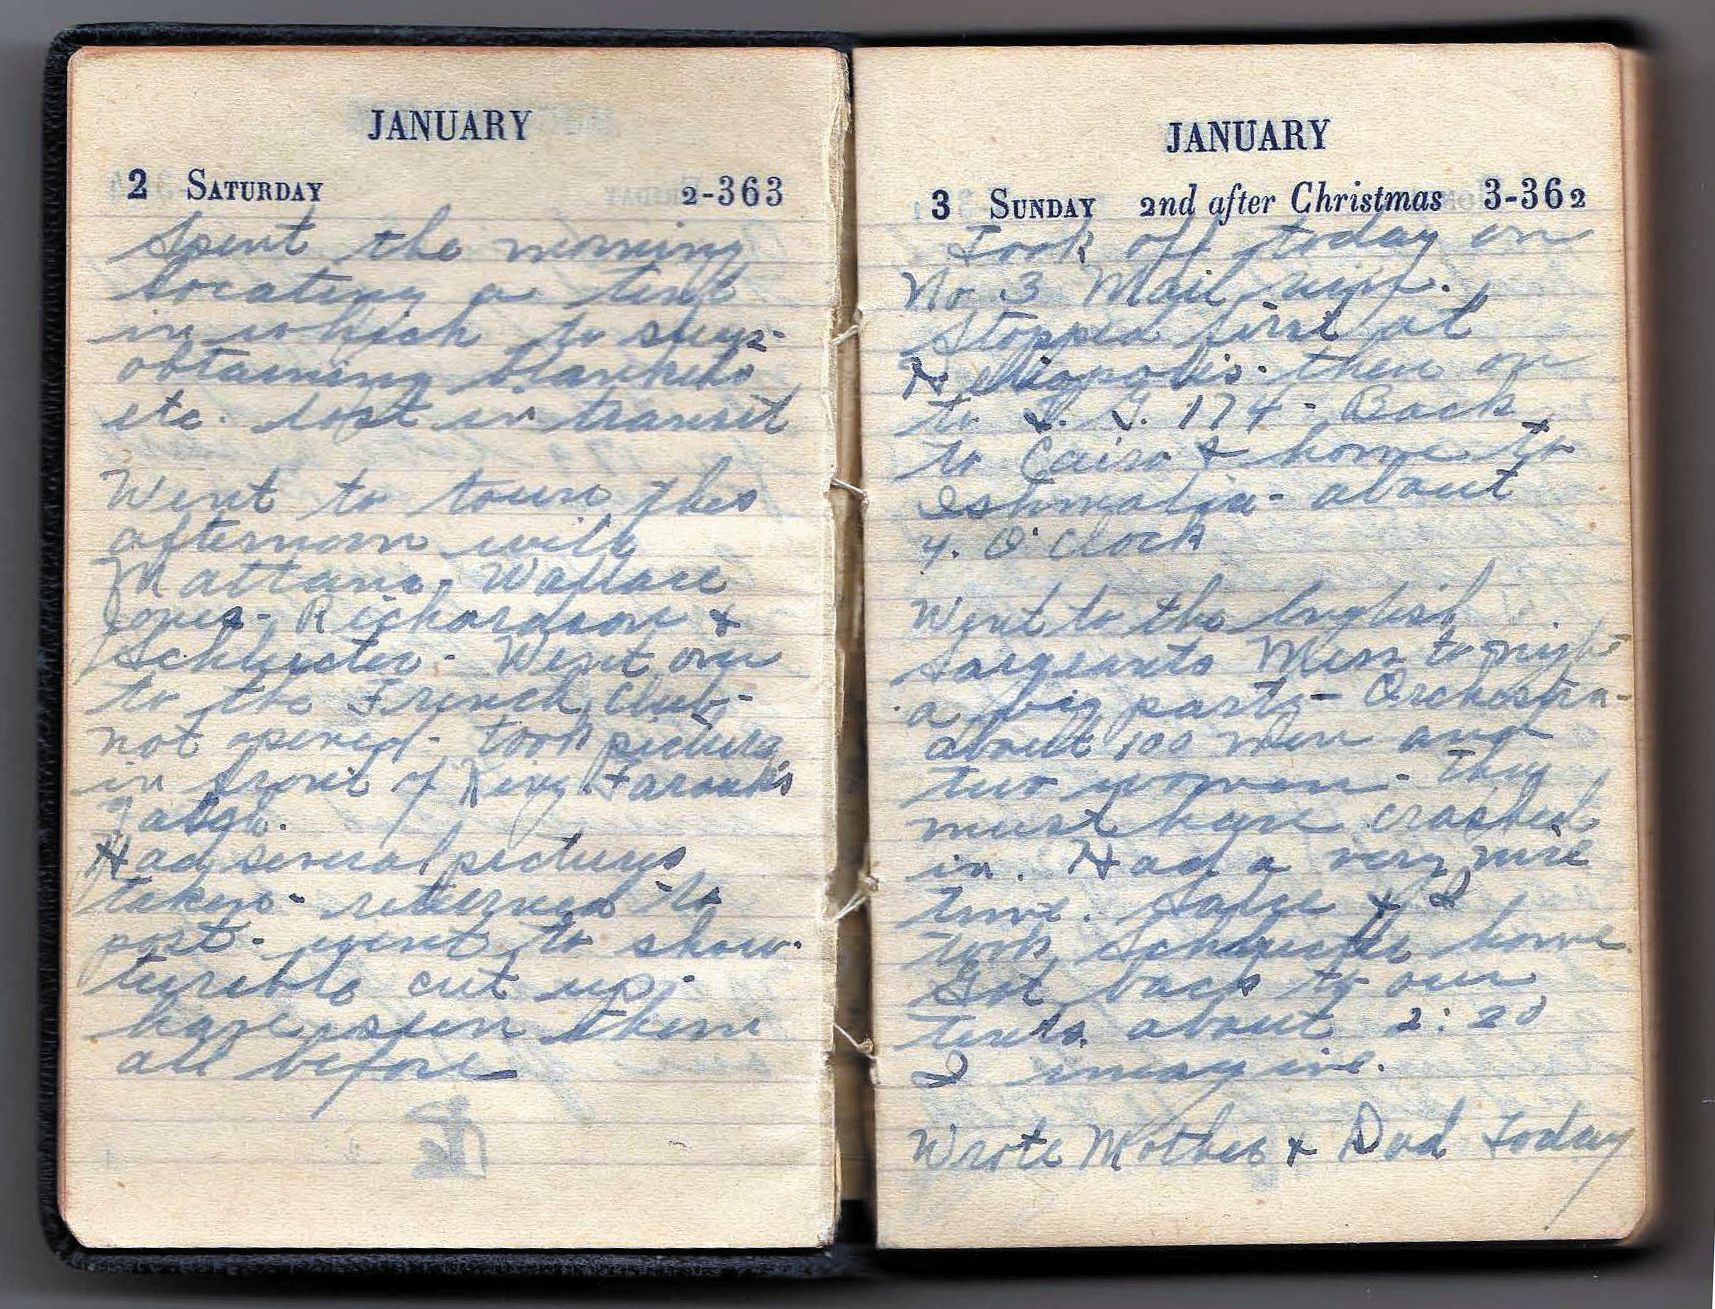 JANUARY
2 SATURDAY 2-363
Spent the morning
locating a tent
in which to sleep-
obtaining blankets
etc. lost in transit
Went to town this
afternoon with
Wallace
Jones- Richardson &
Schlecter- Went over
to the French Club-
not opened- took pictures
in front of King Farouk's
Had several pictures
taken- returned to
post- went to show-
terible cut up-
have seen them
all before
JANUARY
3 SUNDAY 2nd after Christmas 3-362
Took off today on
No 3 Mail run.
Stopped first at
Heliopolis- then on
to L. G. 174- Back
to Cairo & home to
Ishmalia- about
4. O'Clock
Went to the English
Sargeants Mess tonight
a big party- Orchestra-
about 100 men and
two women- They
must have crashed
in. Had a very nice
time. & I
took home.
Got back to our
tents about 2:20
I imagine.
Wrote Mother & Dad Today